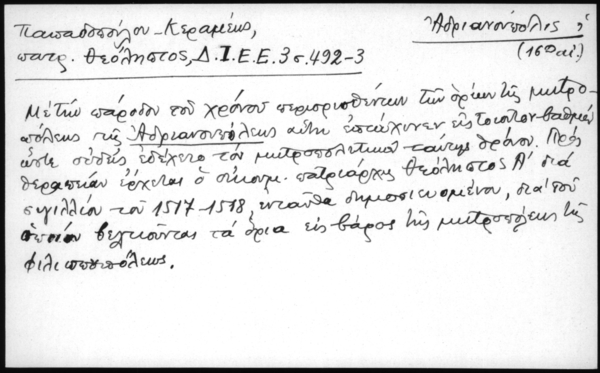 Παπαδοπούλου-Κεραμέως,
πατρ. Θεόληπτος, Δ.Ι.Ε.Ε. 3 σ. 492-3
Ἀδριανούπολις
(16ο αἰ.)
Μέ τήν πάροδον τοῦ χρόνου περιορισθέντων τῶν ὁρίων τῆς μητρο-
πόλεως τῆς Ἀδριανουπόλεως αὕτη ἐπτώχυνεν εἰς τοιοῦτον βαθμόν
ὥστε οὐδείς ἐδέχετο τόν μητροπολιτικόν ταύτης θρόνον. Πρός
θεραπείαν ἔρχεται ὁ οἰκουμ. πατριάρχης Θεόληπτος Α' διά
σιγιλλίου τοῦ 1517-1518, ἐνταῦθα δημοσιευομένου, διά τοῦ
ὁποίου βελτιοῦνται τά ὅρια εἰς βάρος τῆς μητροπόλεως τῆς
Φιλιππουπόλεως.